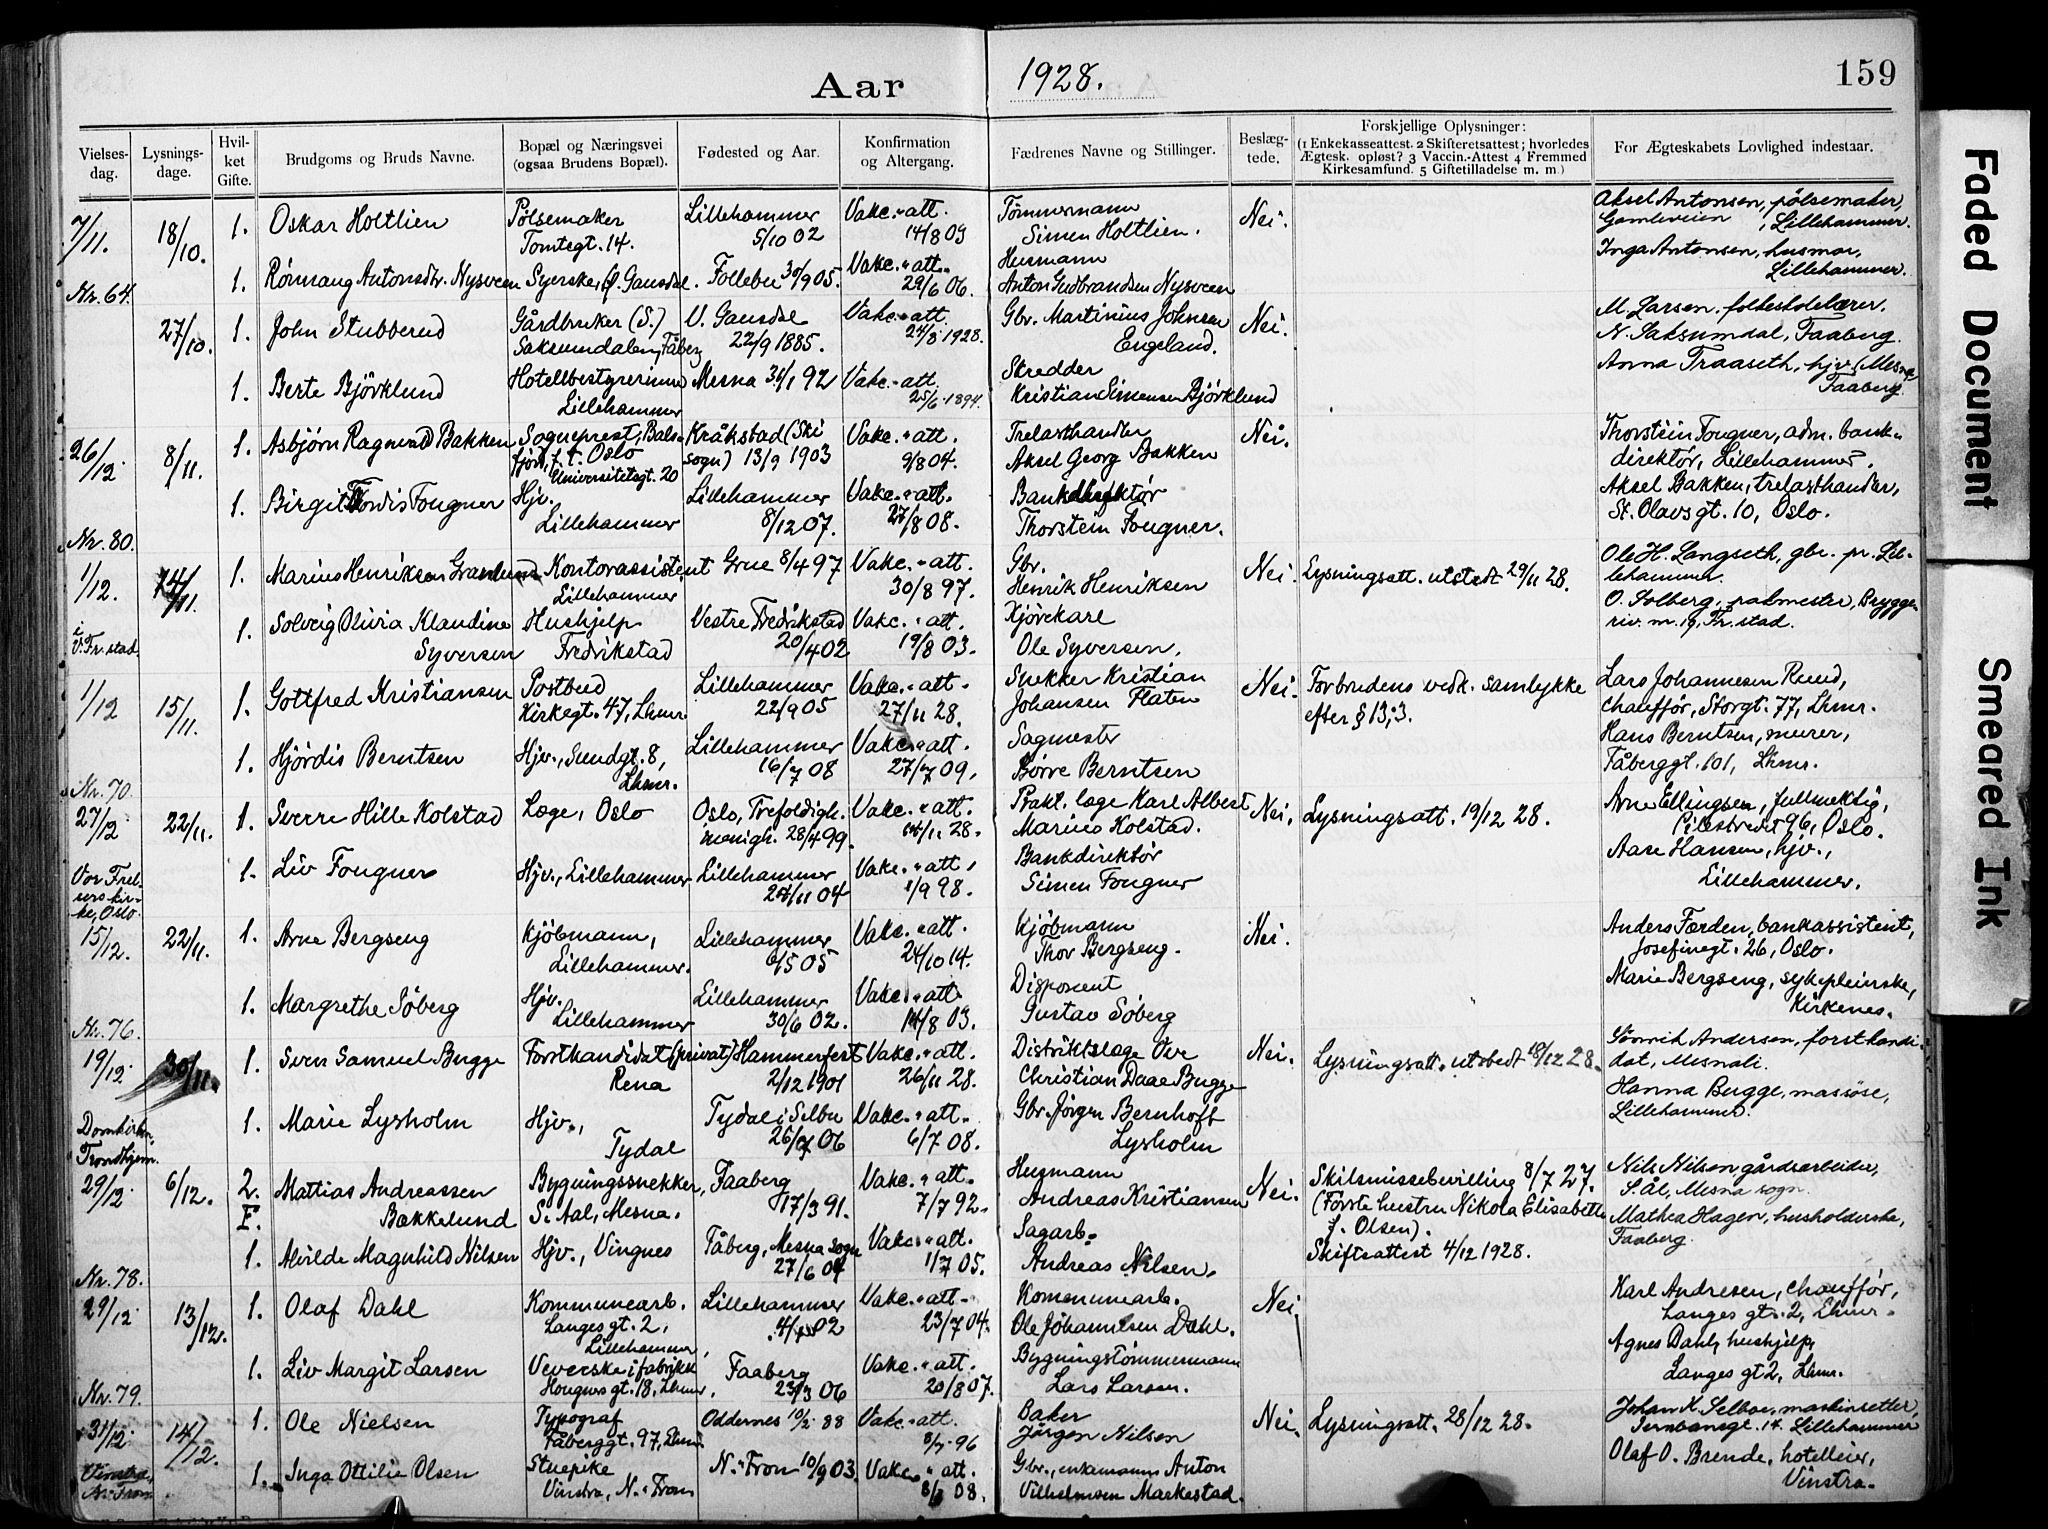 Aar 1928. 159
Vielses-dag. Lysnings-dage. Hvil-ket Gifte. Brudgoms og Bruds Navne. Bopæl og Næringsvei (ogsaa Brudens Bopæl). Fødested og Aar. Konfirmation og Altergang. Fædrenes Navne og Stillinger. Beslæg-tede. Forskjellige Oplysninger: (1 Enkekasseattest. 2 Skifteretsattest; hvorledes Ægtesk. opløst? 3 Vaccin.-Attest 4 Fremmed Kirkesamfund. 5 Giftetilladelse m. m.) For Ægteskabets Lovlighed indestaar.
7/11. 18/10. 1. Oskar Holtlien Pølsemaker Tomtegt. 14. Lillehammer 5/10 02 Vakc.-att. 14/8 03 Tømmermann Simen Holtlien. Nei. Aksel Antonsen, pølsemaker, Gamleveien, Lillehammer.
Nr. 64. 1. Rønnaug Antonsdtr. Nysveen Syerske, Gausdal. Follebu 30/9 05. Vakc.-att. 29/6 06. Husmann Anton Gudbrandsen Nysveen Inga Antonsen, husmor, Lillehammer.
27/10. 1. John Stubberud Gårdbruker (S.) Saksumdalen, Fåberg V. Gausdal 22/9 1885. Vakc.-att. 24/8 1928. Gbr. Martinius Johnsen Engeland. Nei. M. Larsen, folkeskolelærer. N. Saksumdal, Faaberg.
1. Berte Bjørklund Hotellbestyrerinne Lillehammer Mesna 31/1 92 Vakc.-att. 25/6 1894. Skredder Kristian Simensen Bjørklund Anna Traaseth, hjv. (Mesna, Faaberg.
26/12. 8/11. 1. Asbjørn Ragnvald Bakken Sogneprest, Balsfjord, f. t. Oslo Universitetsgt. 20 Kråkstad (Ski sogn) 13/9 1903 Vakc.-att. 9/8 04. Trelasthandler Aksel Georg Bakken Nei. Thorstein Fougner, adm. bankdirektør, Lillehammer.
Nr. 80. 1. Birgit Tordis Fougner Hjv. Lillehammer Lillehammer 8/12 07. Vakc.-att. 27/8 08. Bankdirektør Thorstein Fougner. Aksel Bakken, trelasthandler, St. Olavs gt. 10, Oslo.
1/12. 14/11. 1. Marius Henriksen Kontorassistent Lillehammer Grue 8/4 97 Vakc.-att. 30/8 97. Gbr. Henrik Henriksen Nei. Lysningsatt. utstedt 29/11 28. Ole H. Langseth, gbr. pr. Lillehammer.
i V. Fr.stad. 1. Solveig Olivia Klaudine Syversen Hushjelp Fredrikstad Vestre Fredrikstad 20/4 02 Vakc.-att. 19/8 03. Kjørekare Ole Syversen. O. Solberg, Fr.stad.
1/12 15/11. 1. Gottfred Kristiansen Postbud Kirkegt. 47, Lhmr. Lillehammer 22/9 05 Vakc.-att. 27/11 28. Snekker Kristian Johansen Flaten Nei. Forbrudens vedk. samtykke efter § 13;3. Lars Johannesen Ruud, chauffør, Storgt. 77, Lhmr.
Nr. 70. 1. Hjørdis Berntsen Hjv., Sundgt. 8, Lhmr. Lillehammer 16/7 08 Vakc.-att. 27/7 09. Sagmester Børre Berntsen Hans Berntsen, murer, Fåberggt. 101, Lhmr.
27/12 22/11. 1. Sverre Hille Kolstad Læge, Oslo Oslo, Trefoldigh. menigh. 28/4 99. Vakc.-att. 14/11 28. Prakt. læge Karl Albert Marius Kolstad. Nei. Lysningsatt. 19/12 28. Arne Ellingsen, fullmektig, Pilestredet 96, Oslo.
Vor Frelsers kirke, Oslo. 1. Liv Fougner Hjv., Lillehammer Lillehammer 24/11 04 Vakc.-att. 1/9 98. Bankdirektør Simen Fougner Aase Hansen, hjv., Lillehammer.
15/12. 22/11. 1. Arne Bergseng Kjøbmann, Lillehammer. Lillehammer Vakc.-att. 24/10 14. Kjøbmann Thor Bergseng. Nei. Anders Færden, bankassistent, Josefinegt. 26, Oslo.
Nr. 76. 1. Margrethe Søberg Hjv. Lillehammer Lillehammer 30/6 02. Vakc.-att. 14/8 03. Disponent Gustav Søberg Marie Bergseng, sykepleierske, Kirkenes.
19/12. 30/11. 1. Sven Samuel Bugge Forstkandidat (privat) Rena Hammerfest 2/12 1901 Vakc.-att. 26/11 28. Distriktslæge Ove Christian Daae Bugge Nei. Lysningsatt. utstedt 18/12 28. Andersen, forstkandidat, Mesnali.
Domkirken, Trondhjem. 1. Marie Lysholm Hjv., Tydal Tydal i Selbu 26/7 06 Vakc.-att. 6/7 08. Gbr. Jørgen Bernhoft Lysholm Hanna Bugge, massøse, Lillehammer.
29/12. 6/12. 2. F. Mattias Andreassen Bækkelund Bygningssnekker, S. Aal, Mesna. Faaberg 17/3 91. Vakc.-att. 7/7 92. Husmann Andreas Kristiansen Nei. Skilsmissebevilling 8/7 27. (Første hustru Nikola Elisabeth f. Olsen). Skiftsattest 4/12 1928. Nils Nilsen gårdsarbeider, S. Ål, Mesna sogn.
Nr. 78. 1. Alvilde Magnhild Nilsen Hjv., Vingnes Fåberg, Mesna sogn 27/6 04 Vakc.-att. 11/7 05. Sagarb. Andreas Nilsen. Mathea Hagen, husholderske, Faaberg.
29/12. 13/12. 1. Olaf Dahl Kommunearb. Langes gt. 2, Lillehammer, Lillehammer Vakc.-att. 23/7 04. Kommunearb. Ole Johannesen Dahl. Nei. Karl Andresen, chauffør, Langes gt. 2, Lhmr.
Nr. 79. 1. Liv Margit Larsen Veverske i fabrikk Hougners gt. 18, Lhmr. Faaberg 23/3 06 Vakc.-att. 20/8 07. Bygningstømmermann Lars Larsen. Agnes Dahl, hushjelp, Langes gt 2, Lhmr.
31/12. 14/12. 1. Ole Nielsen Typograf Fåberggt. 97, Lhmr. Oddernes 10/2 88 Vakc.-att. 96 Baker Jørgen Nilsen Nei. Lysningsatt. 28/12 28. Johan K. Selboe, maskinsetter, Jernbanegt. 14. Lillehammer
Vinstra, N. Fron 1. Inga Ottilie Olsen Stuepike Vinstra, N. Fron N. Fron 10/9 03. Vakc.-att. 08. Gbr., enkemann Anton Vilhelmsen Markestad. Olaf O. Brende, hotelleier, Vinstra.
Faded Document
Smeared Ink